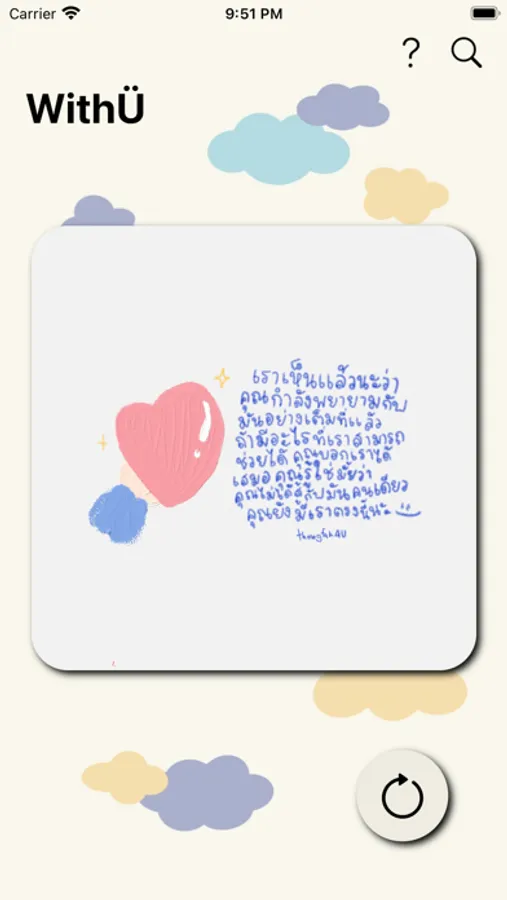 Carrier 9:51 PM
WithÜ
เราเห็นแล้วนะว่า
คุณกำลังพยายามกับ
มันอย่างเต็มที่แล้ว
ถ้ามีอะไรที่เราสามารถ
ช่วยได้ คุณบอกเราได้
เสมอ คุณรู้ใช่มั้ยว่า
คุณไม่ได้สู้กับมันคนเดียว
คุณยังมีเราตรงนี้นะ